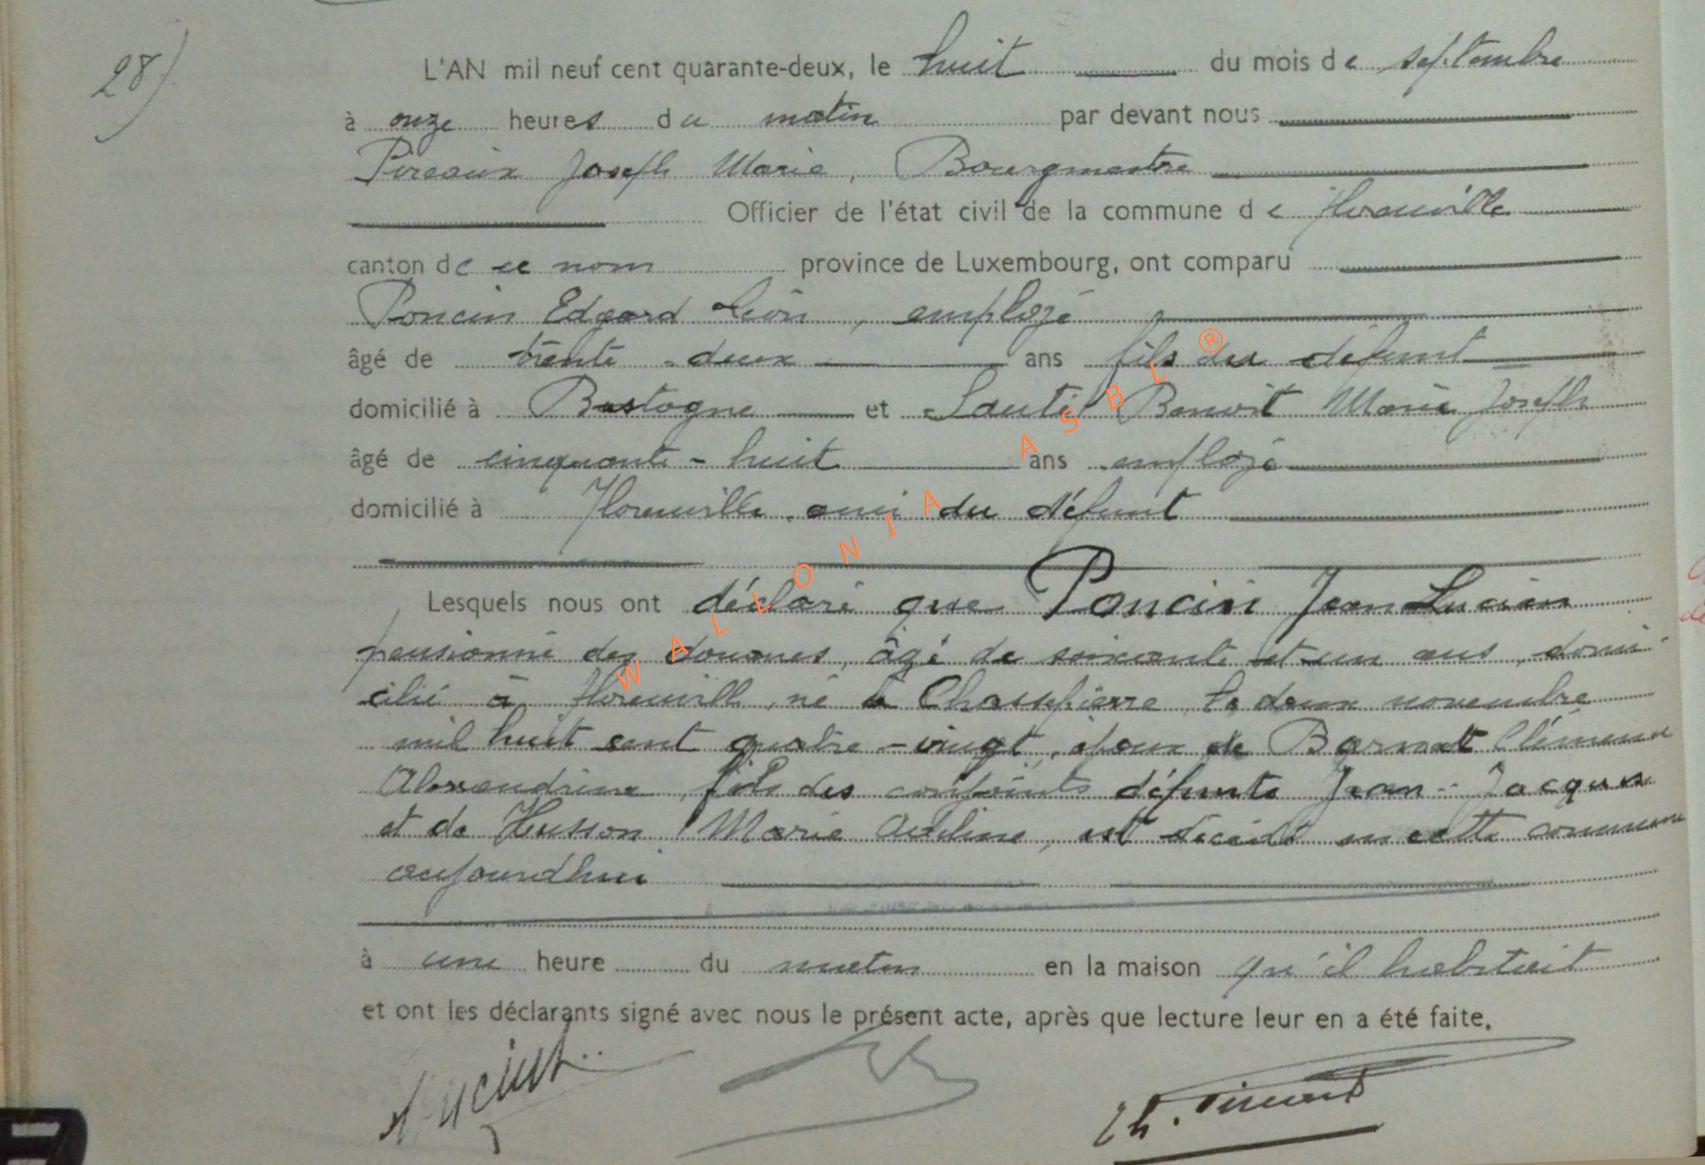 28)
L'AN mil neuf cent quarante-deux, le huit du mois de septembre
à onze heures du matin par devant nous
Pireaux Joseph Marie, Bourgmestre
Officier de l'état civil de la commune de Florenville
canton de ce nom province de Luxembourg, ont comparu
Poncin Edgard Léon, employé
âgé de trente-deux ans fils du défunt
domicilié à Bastogne et Benoit Marie Joseph
âgé de cinquante-huit ans employé
domicilié à Florenville ami du défunt
Lesquels nous ont déclaré que Poncin Jean Lucien
pensionné des douanes, âgé de soixante et un ans, domi-
cilié à Florenville, né à Chassepierre le deux novembre
mil huit cent quatre-vingt, époux de Clémence
Alexandrine, fils des conjoints défunts Jean-Jacques
et de Husson Marie Adeline, est décédé en cette commune
aujourdhui
à une heure du matin en la maison qu'il habitait
et ont les déclarants signé avec nous le présent acte, après que lecture leur en a été faite.
WALLONIA ASBL ®